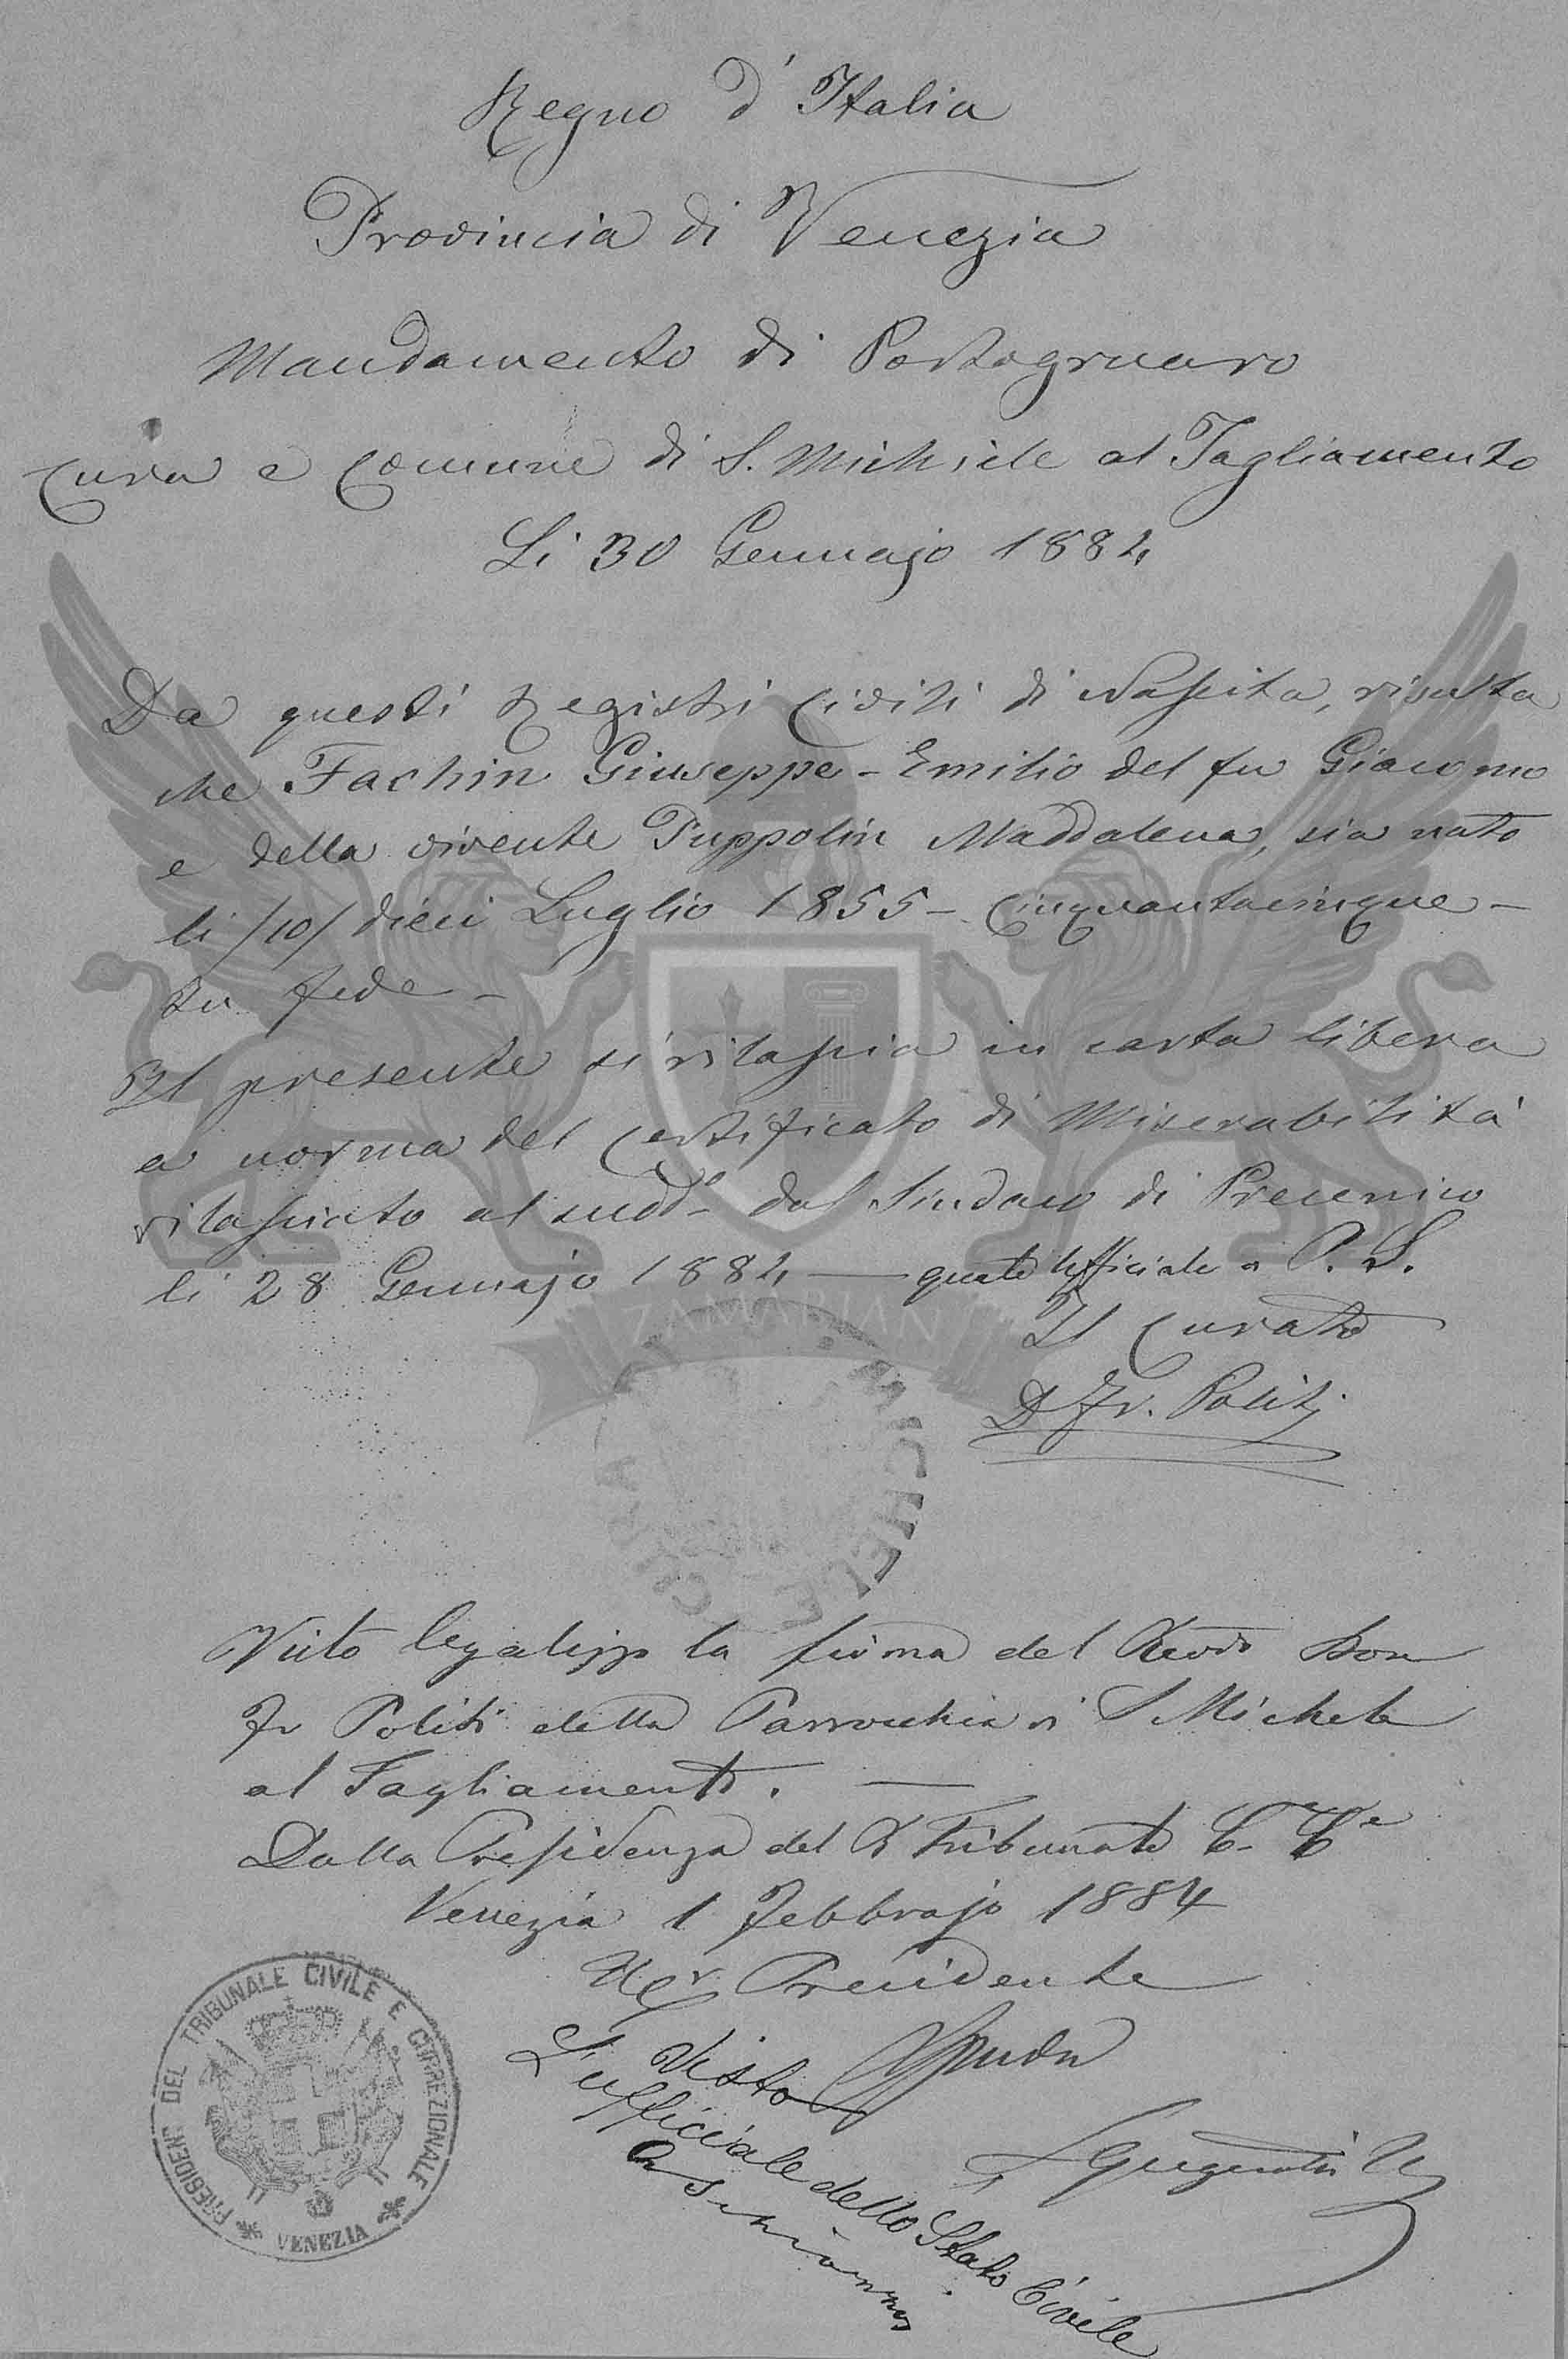 Regno d'Italia
Provincia di Venezia
Mandamento di Portogruaro
Cura e Comune di S. Michiele al Tagliamento
Li 30 Gennajo 1884
Da questi Registri Civili di Nascita, risulta
che Fachin Giuseppe - Emilio del fu Giacomo
e della vivente Puppolin Maddalena, sia nato
li /10/ dieci Luglio 1855 - Cinquantacinque -
In fede -
Il presente si rilascia in carta libera
a norma del Certificato di Miserabilità
rilasciato al sudd.o dal Sindaco di Precenico
li 28 Gennajo 1884 — quale Ufficiale di P. S.
Il Curato
D Fr. Politi
ZAMARIAN
CURA MICHELE
Visto legalizzo la firma del Revdo Don
Fr Politi della Parrocchia di S Michele
al Tagliamento. —
Dalla Presidenza del R Tribunale C. C.e
Venezia 1 Febbrajo 1884
Presidente
PRESIDEN DEL TRIBUNALE CIVILE E CORREZIONALE
VENEZIA
Visto
L'ufficiale dello Stato Civile